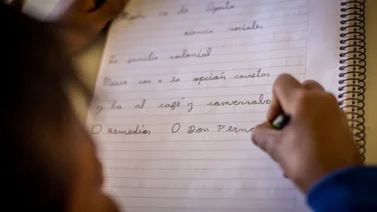 de Agosto
ciencia sociales.
La familia colonial
Marco con x la opción correcta
y la al café y conversaba
O Remedios O Don Perna